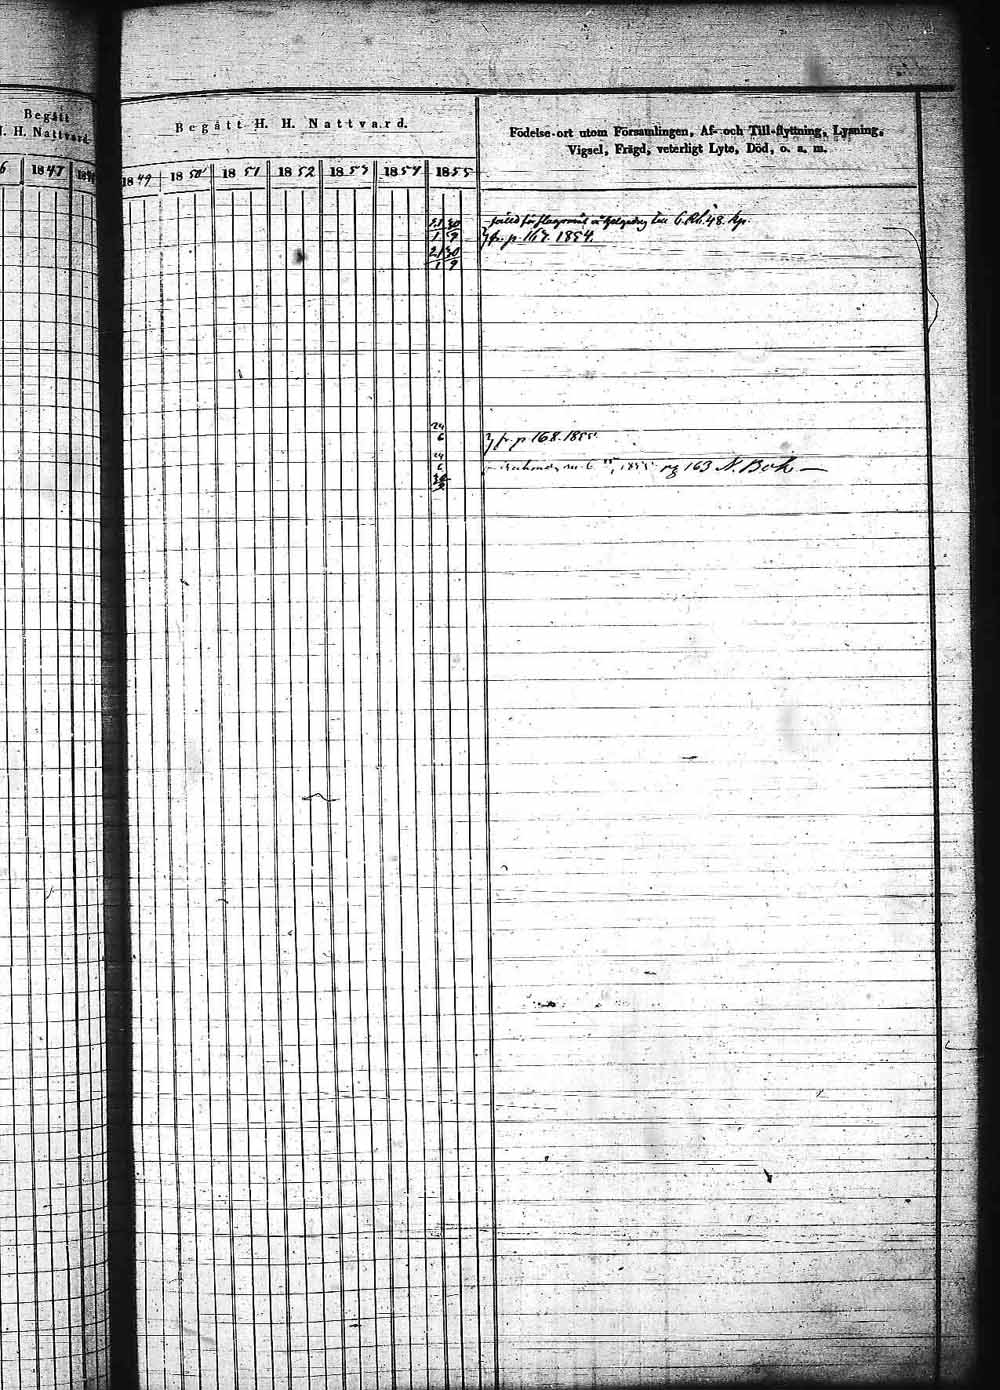 Begått
H. H. Nattvard
6 1847 18
Begått H. H. Nattvard.
1849 1850 1851 1852 1853 1854 1855
Födelse-ort utom Församlingen, Af- och Till-flyttning, Lysning,
Vigsel, Frägd, veterligt Lyte, Död, o. s. m.
21 30 6 Rd. 48.
1 9 fr. p. 167. 1854.
21 30
1 9
24
6 fr. p 168. 1855
24
6 163 N. Bok
30
9